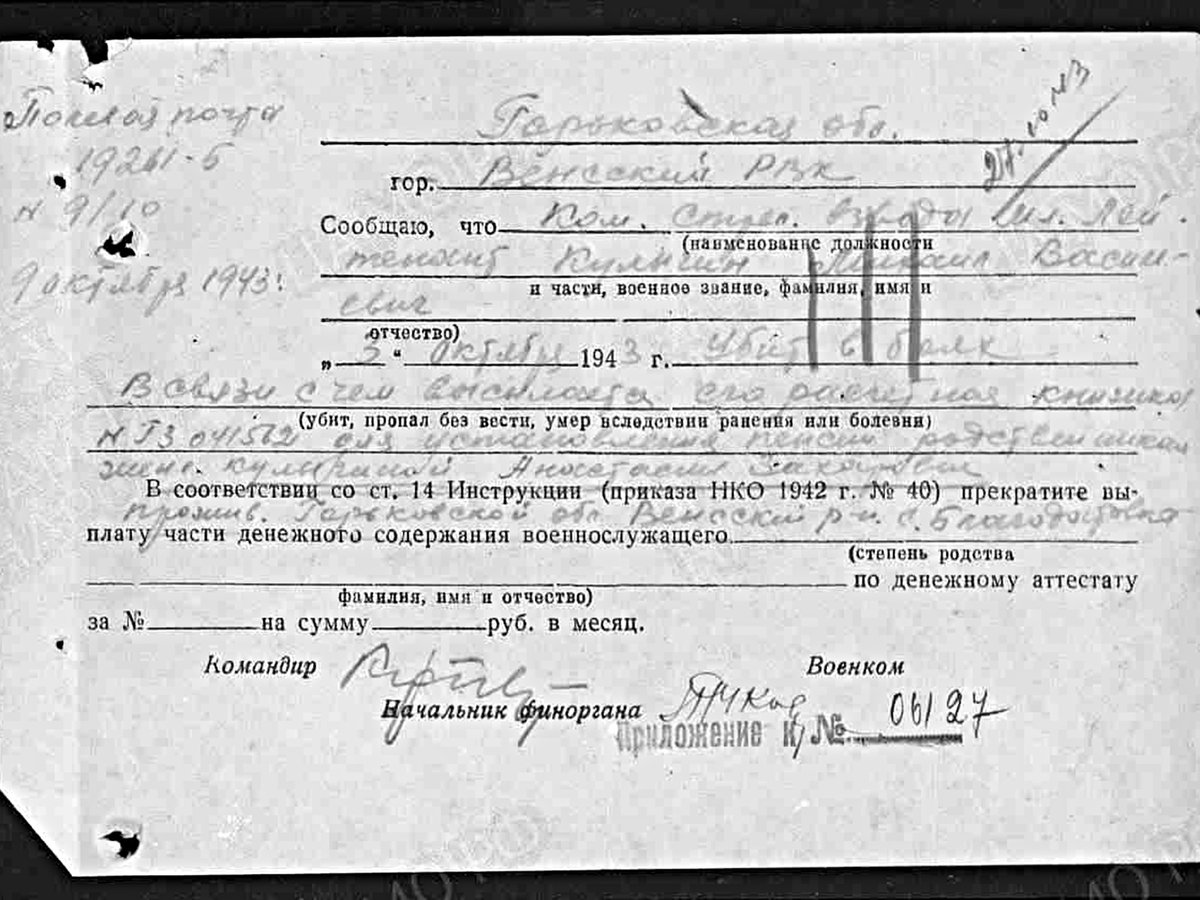 Полевая почта
19261-Б
N 9/10
9 октября 1943г.
27.10.43
Горьковская обл.
гор. Венсский РВК
Сообщаю, что Ком. стрел. взвода мл. лей-
(наименование должности
тенант Кулыгин Михаил Васил-
и части, военное звание, фамилия, имя и
евич
отчество)
„3“ октября 1943 г. Убит в боях
В связи с чем высылается его расчетная книжка
(убит, пропал без вести, умер вследствии ранения или болезни)
N ГЗ 041512 для установления пенсии родственникам
жене. Кулыгиной Анастасии Захаровне
В соответствии со ст. 14 Инструкции (приказа НКО 1942 г. № 40) прекратите вы-
прожив. Горьковской обл. Венсский р-н. с. Благодатовка
плату части денежного содержания военнослужащего
(степень родства
по денежному аттестату
фамилия, имя и отчество)
за № на сумму руб. в месяц.
Командир Военком
Начальник финоргана
Приложение к № 06127